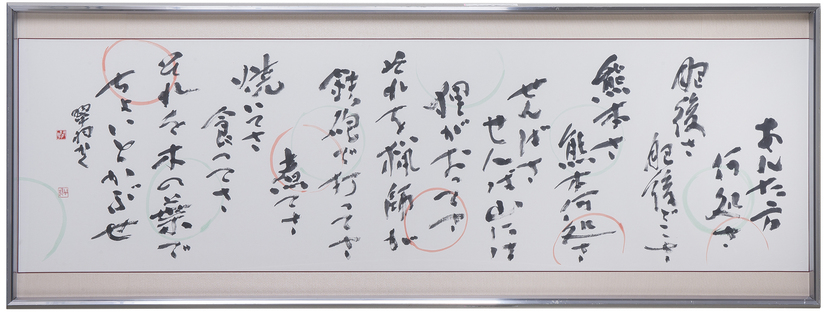 あんた方
何処さ
肥後さ
肥後どこさ
熊本さ
熊本何処さ
せんばさ
せんば山には
狸がおってさ
それを猟師が
鉄砲で打ってさ
煮てさ
焼いてさ
食ってさ
それを木の葉で
ちょいとかぶせ